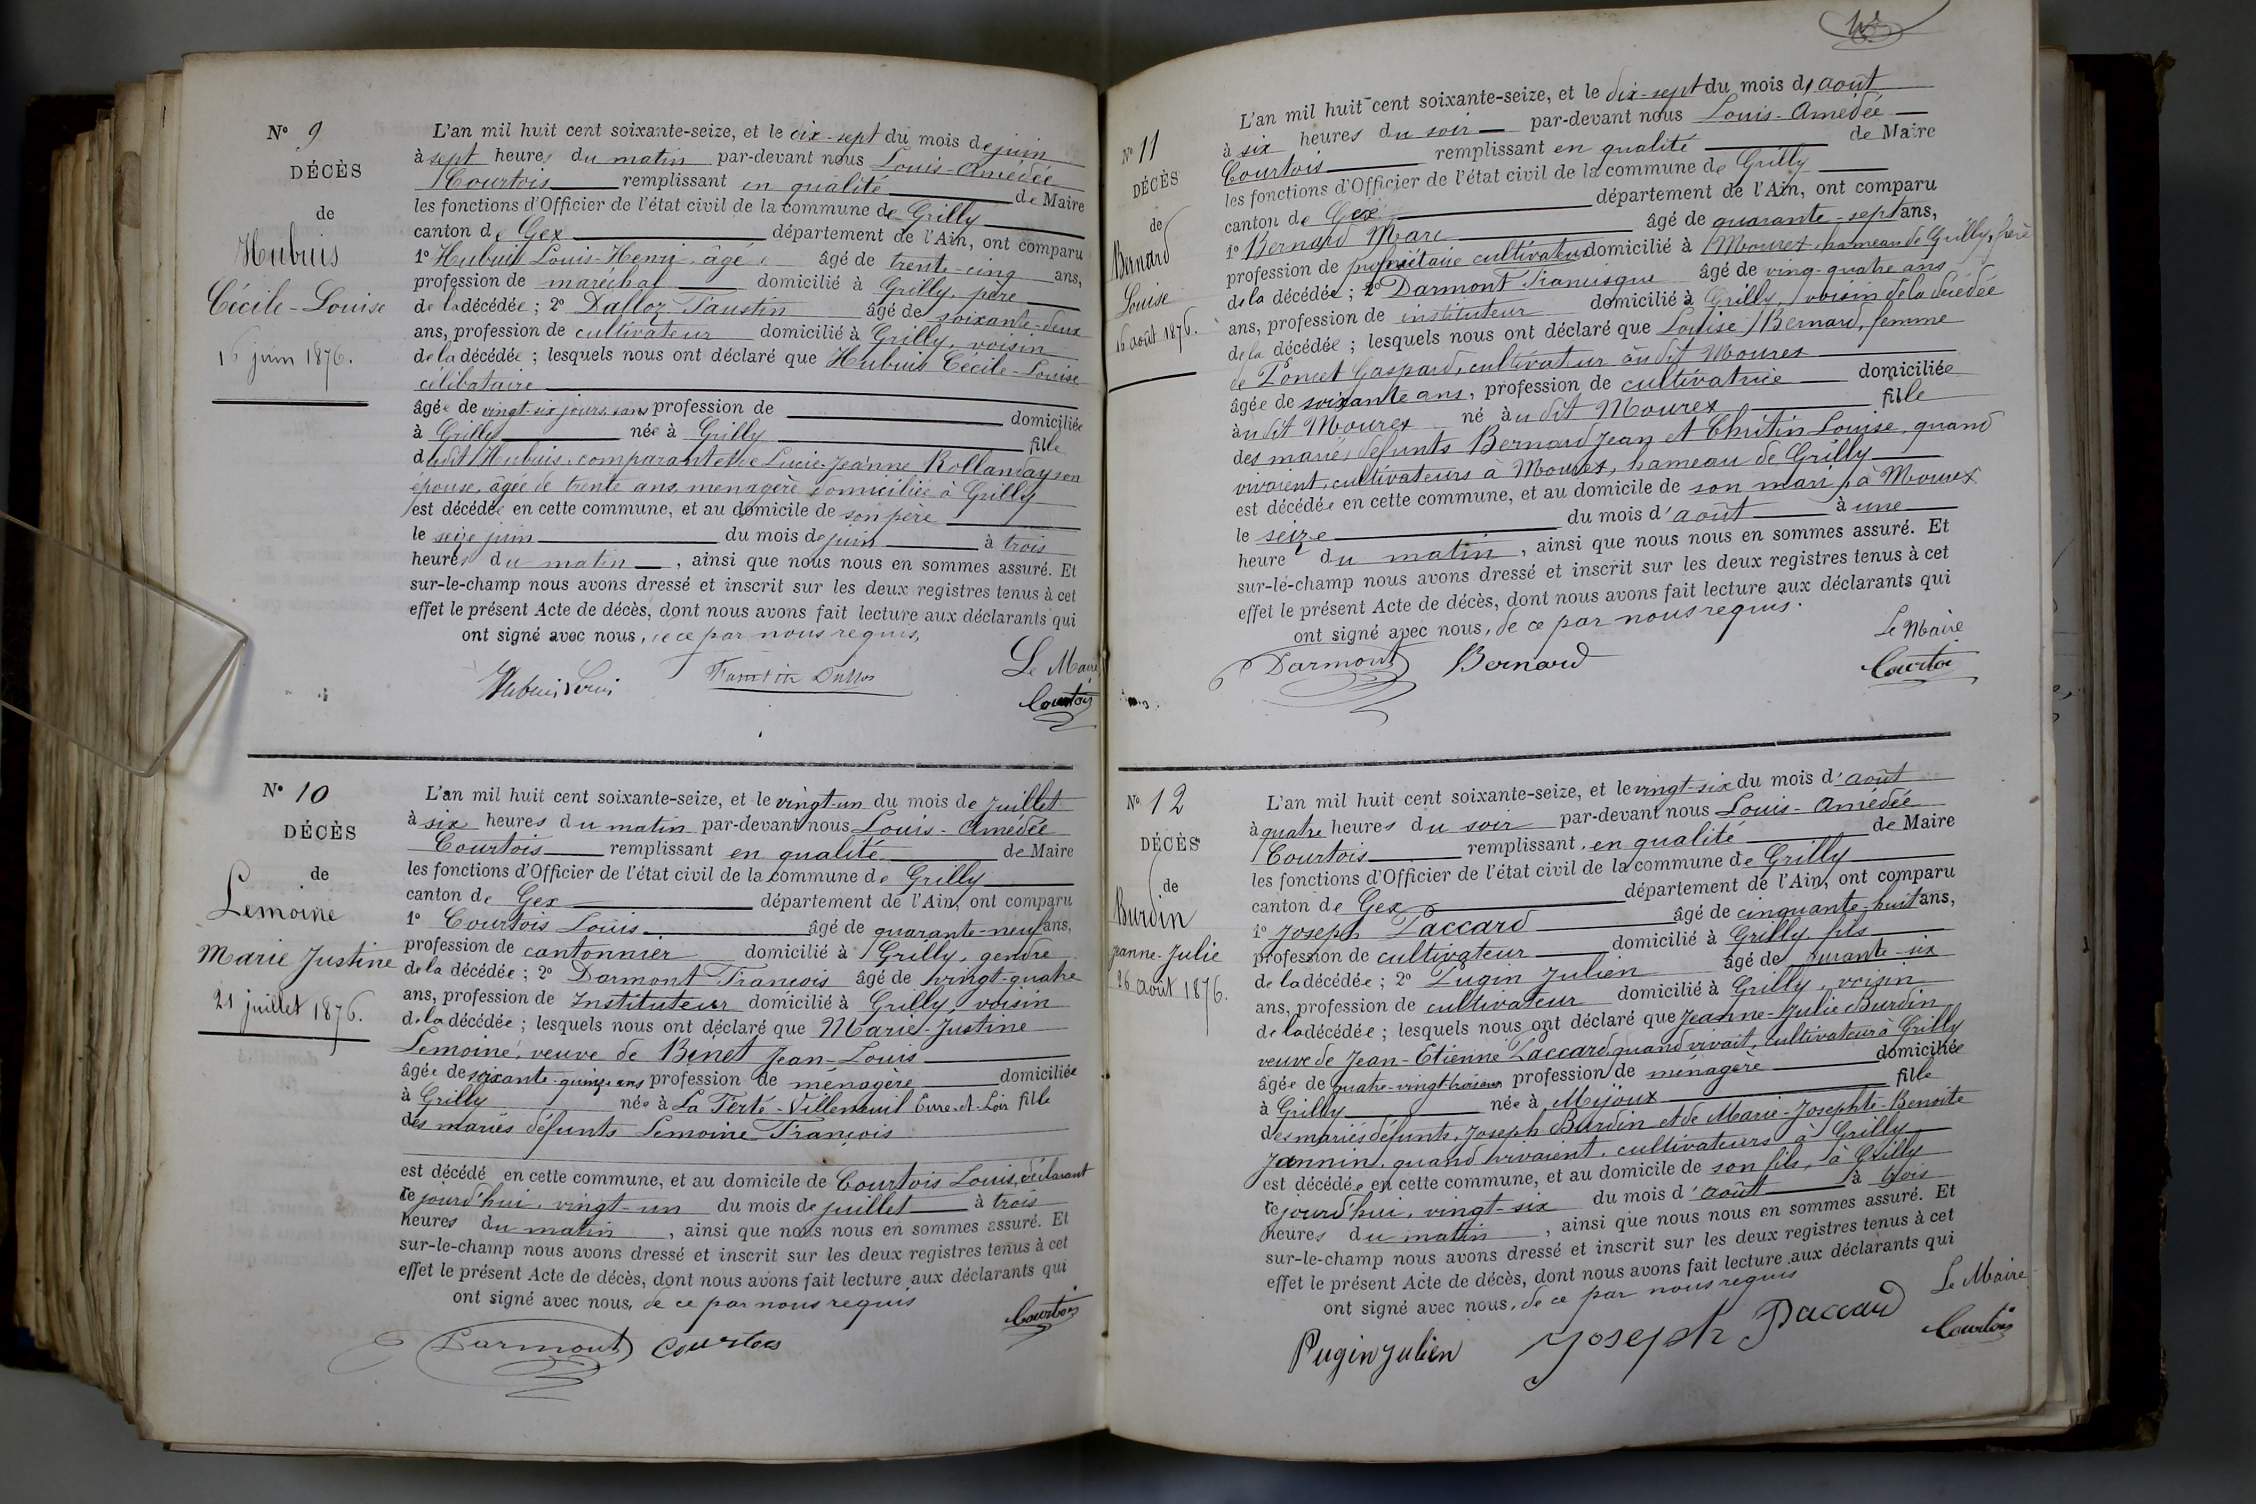 N° 9
DÉCÈS
de
Hubuis
Cécile-Louise
16 juin 1876.
L'an mil huit cent soixante-seize, et le dix-sept du mois de juin
à sept heures du matin par-devant nous Louis-Amédée
Courtois remplissant en qualité de Maire
les fonctions d'Officier de l'état civil de la commune de Grilly
canton de Gex département de l'Ain, ont comparu
1° Hubuis Louis-Henri, âgé âgé de trente-cinq ans,
profession de maréchal domicilié à Grilly, père
de la décédée ; 2° Dalloz Faustin âgé de soixante-deux
ans, profession de cultivateur domicilié à Grilly, voisin
de la décédée ; lesquels nous ont déclaré que Hubuis Cécile-Louise
célibataire
âgée de vingt-six jours, sans profession de domiciliée
à Grilly née à Grilly fille
dudit Hubuis, comparant et de Lucie-Jeanne Rollanday son
épouse, âgée de trente ans, menagère domiciliée à Grilly
est décédée en cette commune, et au domicile de son père
le seize juin du mois de juin à trois
heures du matin, ainsi que nous nous en sommes assuré. Et
sur-le-champ nous avons dressé et inscrit sur les deux registres tenus à cet
effet le présent Acte de décès, dont nous avons fait lecture aux déclarants qui
ont signé avec nous, de ce par nous requis,
Le Maire
Faustin Dallos
Courtois
N° 10
DÉCÈS
de
Lemoine
Marie Justine
21 juillet 1876.
L'an mil huit cent soixante-seize, et le vingt-un du mois de juillet
à six heures du matin par-devant nous Louis-Amédée
Courtois remplissant en qualité de Maire
les fonctions d'Officier de l'état civil de la commune de Grilly
canton de Gex département de l'Ain, ont comparu
1° Courtois Louis âgé de quarante-neuf ans,
profession de cantonnier domicilié à Grilly, gendre
de la décédée ; 2° Darmont François âgé de vingt-quatre
ans, profession de Instituteur domicilié à Grilly, voisin
de la décédée ; lesquels nous ont déclaré que Marie-Justine
Lemoine, veuve de Binet Jean-Louis
âgée de soixante-quinze ans profession de ménagère domiciliée
à Grilly née à La Ferté-Villeneuil Eure-et-Loir fille
des mariés défunts Lemoine François
est décédé en cette commune, et au domicile de Courtois Louis, déclarant
ce jourd'hui, vingt-un du mois de juillet à trois
heures du matin, ainsi que nous nous en sommes assuré. Et
sur-le-champ nous avons dressé et inscrit sur les deux registres tenus à cet
effet le présent Acte de décès, dont nous avons fait lecture aux déclarants qui
ont signé avec nous, de ce par nous requis
Courtois
Darmont Courtois
N° 11
DÉCÈS
de
Bernard
Louise
16 août 1876.
L'an mil huit cent soixante-seize, et le dix-sept du mois d'août
à six heures du soir par-devant nous Louis-Amédée
Courtois remplissant en qualité de Maire
les fonctions d'Officier de l'état civil de la commune de Grilly
canton de Gex département de l'Ain, ont comparu
1° Bernard Marc âgé de quarante-sept ans,
profession de propriétaire cultivateur domicilié à Mourex hameau de Grilly, frère
de la décédée ; 2° Darmont Francisque âgé de ving-quatre ans
ans, profession de instituteur domicilié à Grilly, voisin de la décédée
de la décédée ; lesquels nous ont déclaré que Louise Bernard, femme
de Poncet Gaspard, cultivateur audit Mourex
âgée de soixante ans, profession de cultivatrice domiciliée
àudit Mourex né àudit Mourex fille
des mariés défunts Bernard Jean et Chritin Louise, quand
vivaient, cultivateurs à Mourex, hameau de Grilly
est décédée en cette commune, et au domicile de son mari, à Mourex
le seize du mois d'août à une
heure du matin, ainsi que nous nous en sommes assuré. Et
sur-le-champ nous avons dressé et inscrit sur les deux registres tenus à cet
effet le présent Acte de décès, dont nous avons fait lecture aux déclarants qui
ont signé avec nous, de ce par nous requis.
Le Maire
Darmont Bernard Courtois
N° 12
DÉCÈS
de
Burdin
Jeanne-Julie
26 août 1876.
L'an mil huit cent soixante-seize, et le vingt-six du mois d'août
à quatre heures du soir par-devant nous Louis-Amédée
Courtois remplissant en qualité de Maire
les fonctions d'Officier de l'état civil de la commune de Grilly
canton de Gex département de l'Ain, ont comparu
1° Joseph Paccard âgé de cinquante-huit ans,
profession de cultivateur domicilié à Grilly, fils
de la décédée ; 2° Pugin Julien âgé de quarante-six
ans, profession de cultivateur domicilié à Grilly, voisin
de la décédée ; lesquels nous ont déclaré que Jeanne-Julie Burdin
veuve de Jean-Etienne Paccard, quand vivait, cultivateur à Grilly
âgée de quatre-vingt-trois ans profession de ménagère domiciliée
à Grilly née à Mijoux fille
des mariés défunts, Joseph Burdin et de Marie-Josephte-Benoite
Jannin, quand vivaient, cultivateurs à Grilly
est décédée en cette commune, et au domicile de son fils, à Grilly
ce jourd'hui, vingt-six du mois d'août à trois
heures du matin, ainsi que nous nous en sommes assuré. Et
sur-le-champ nous avons dressé et inscrit sur les deux registres tenus à cet
effet le présent Acte de décès, dont nous avons fait lecture aux déclarants qui
ont signé avec nous, de ce par nous requis
Le Maire
Pugin Julien Joseph Paccard Courtois